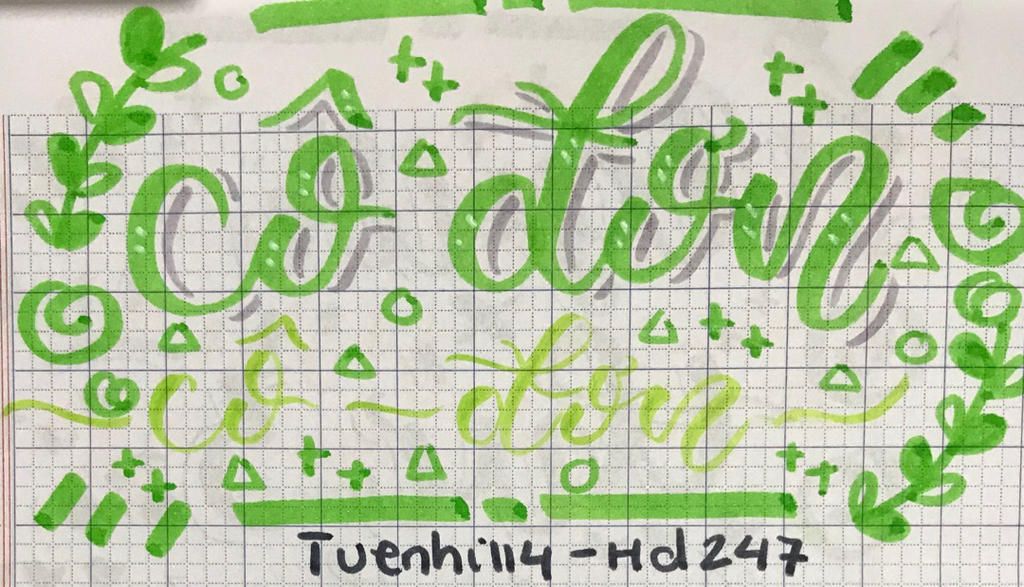 cô đơn
cô đơn
Tuenhi114-Hd247